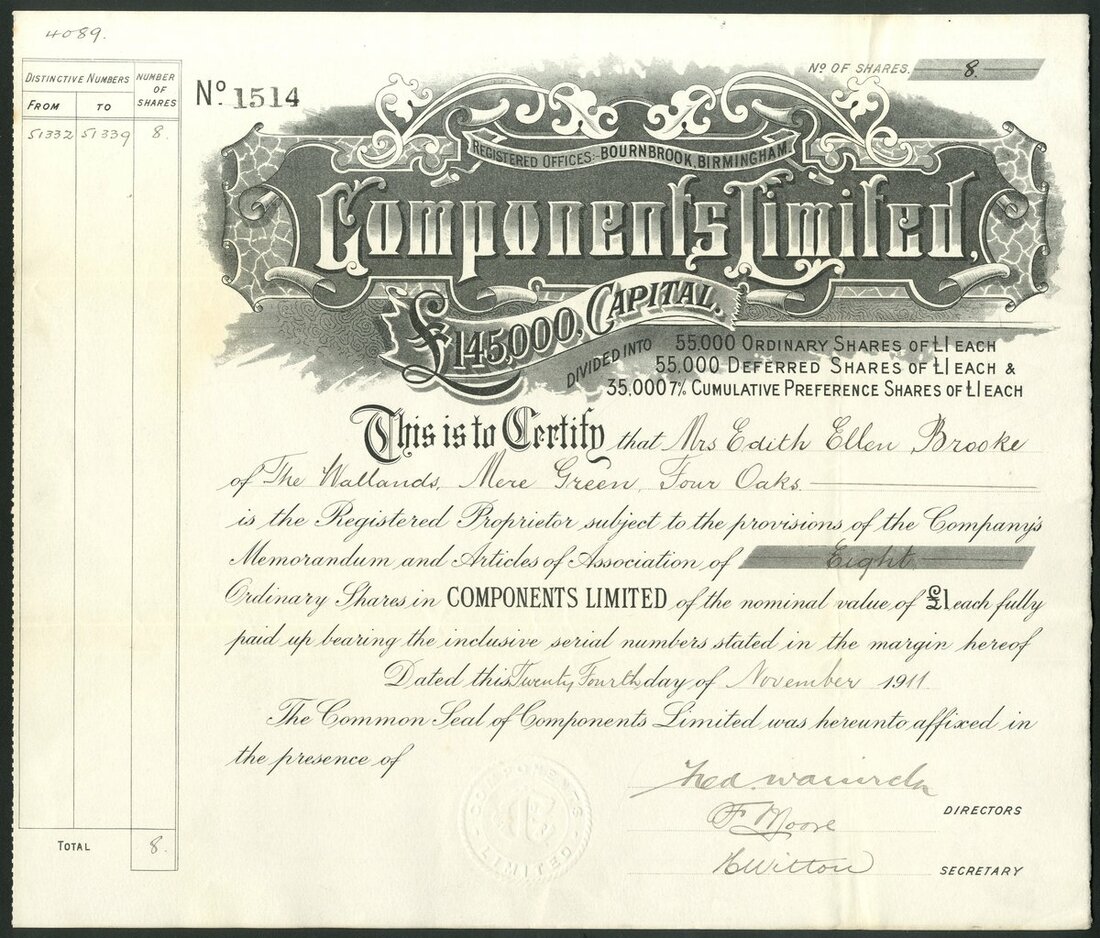 4089.
DISTINCTIVE NUMBERS
NUMBER OF SHARES
FROM TO
51332 51339 8.
No 1514
No OF SHARES. 8.
REGISTERED OFFICES:- BOURNBROOK, BIRMINGHAM.
Components Limited.
£145,000, CAPITAL,
DIVIDED INTO 55,000 ORDINARY SHARES OF £1 EACH
55,000 DEFERRED SHARES OF £1 EACH &
35,000 7% CUMULATIVE PREFERENCE SHARES OF £1 EACH
This is to Certify that Mrs Edith Ellen Brooke
of The Wallands, Mere Green, Four Oaks.
is the Registered Proprietor subject to the provisions of the Company's
Memorandum and Articles of Association of Eight
Ordinary Shares in COMPONENTS LIMITED of the nominal value of £1 each fully
paid up bearing the inclusive serial numbers stated in the margin hereof
Dated this Twenty Fourth day of November 1911.
The Common Seal of Components Limited was hereunto affixed in
the presence of
F Moore
DIRECTORS
COMPONENTS LIMITED
TOTAL 8.
Witton
SECRETARY